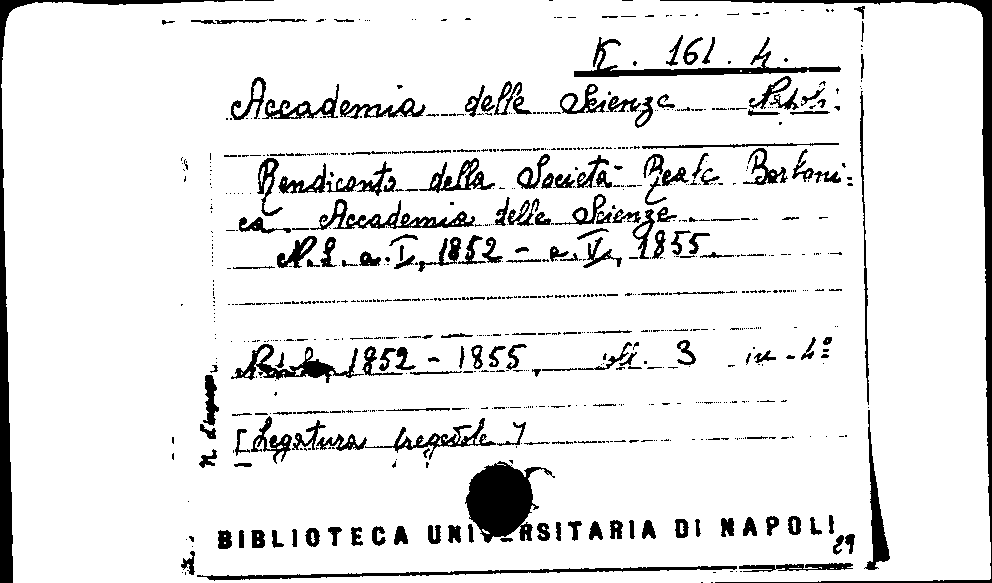 K. 161. 4.
Accademia delle Scienze. Napoli.
Rendiconto della Società Reale Borboni=
ca. Accademia delle Scienze.
N.S. a. I, 1852 - a. V, 1855.
Napoli, 1852 - 1855, voll. 3 in-4º
[Legatura pregevole]
N. d'ingresso
BIBLIOTECA UNIVERSITARIA DI NAPOLI
29